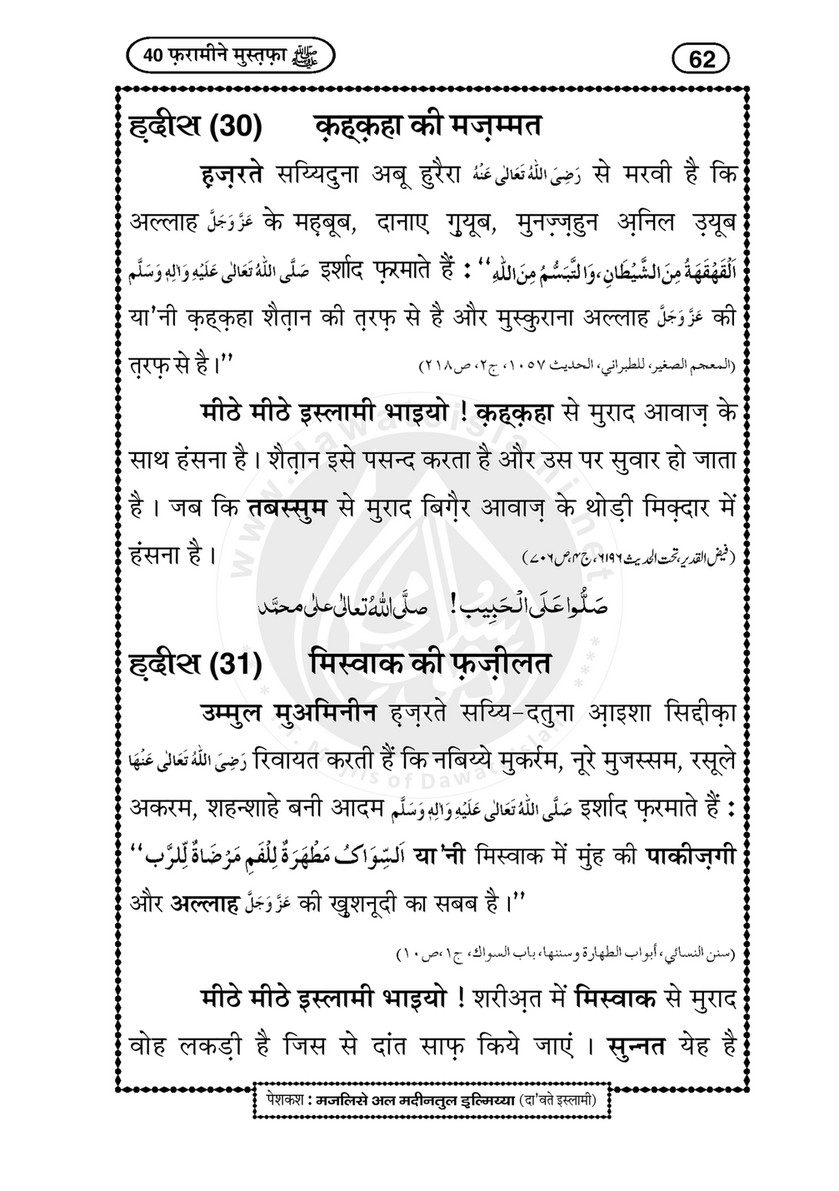 40 फ़रामीने मुस्त़फ़ा ﷺ
62
ह़दीस (30) क़ह्क़हा की मज़म्मत
ह़ज़रते सय्यिदुना अबू हुरैरा رَضِیَ اللّٰہُ تَعَالٰی عَنْہُ से मरवी है कि
अल्लाह عَزَّوَجَلَّ के मह़बूब, दानाए ग़ुयूब, मुनज़्ज़हुन अ़निल उ़यूब
صَلَّی اللّٰہُ تَعَالٰی عَلَیْہِ وَاٰلِہٖ وَسَلَّم इर्शाद फ़रमाते हैं : “اَلْقَهْقَهَةُ مِنَ الشَّيْطَانِ، وَالتَّبَسُّمُ مِنَ اللّٰهِ
या'नी क़ह्क़हा शैत़ान की त़रफ़ से है और मुस्कुराना अल्लाह عَزَّوَجَلَّ की
त़रफ़ से है।” (المعجم الصغير، للطبراني، الحديث ١٠٥٧، ج٢، ص٢١٨)
मीठे मीठे इस्लामी भाइयो ! क़ह्क़हा से मुराद आवाज़ के
साथ हंसना है। शैत़ान इसे पसन्द करता है और उस पर सुवार हो जाता
है। जब कि तबस्सुम से मुराद बिग़ैर आवाज़ के थोड़ी मिक़्दार में
हंसना है। (فیض القدیر، تحت الحدیث ٦١٩٦، ج٤، ص٧٠٦)
صَلُّوا عَلَی الْحَبِیب! صلَّی اللّٰہُ تعالٰی علٰی محمَّد
ह़दीस (31) मिस्वाक की फ़ज़ीलत
उम्मुल मुअमिनीन ह़ज़रते सय्यि-दतुना आ़इशा सिद्दीक़ा
رَضِیَ اللّٰہُ تَعَالٰی عَنْہَا रिवायत करती हैं कि नबिय्ये मुकर्रम, नूरे मुजस्सम, रसूले
अकरम, शहन्शाहे बनी आदम صَلَّی اللّٰہُ تَعَالٰی عَلَیْہِ وَاٰلِہٖ وَسَلَّم इर्शाद फ़रमाते हैं :
“اَلسِّوَاكُ مَطْهَرَةٌ لِلْفَمِ مَرْضَاةٌ لِّلرَّبِّ या'नी मिस्वाक में मुंह की पाकीज़गी
और अल्लाह عَزَّوَجَلَّ की ख़ुशनूदी का सबब है।”
(سنن النسائي، أبواب الطهارة وسننها، باب السواك، ج١، ص١٠)
मीठे मीठे इस्लामी भाइयो ! शरीअ़त में मिस्वाक से मुराद
वोह लकड़ी है जिस से दांत साफ़ किये जाएं । सुन्नत येह है
पेशकश : मजलिसे अल मदीनतुल इल्मिय्या (दा'वते इस्लामी)